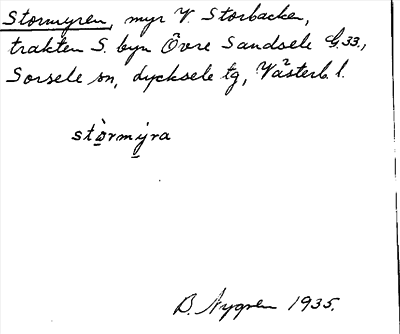 Stormyren, myr V. Storbacken,
trakten S. byn Övre Sandsele G.33.,
Sorsele sn, Lycksele tg, Västerb. l.
stòrmýra
B. Nygren 1935.